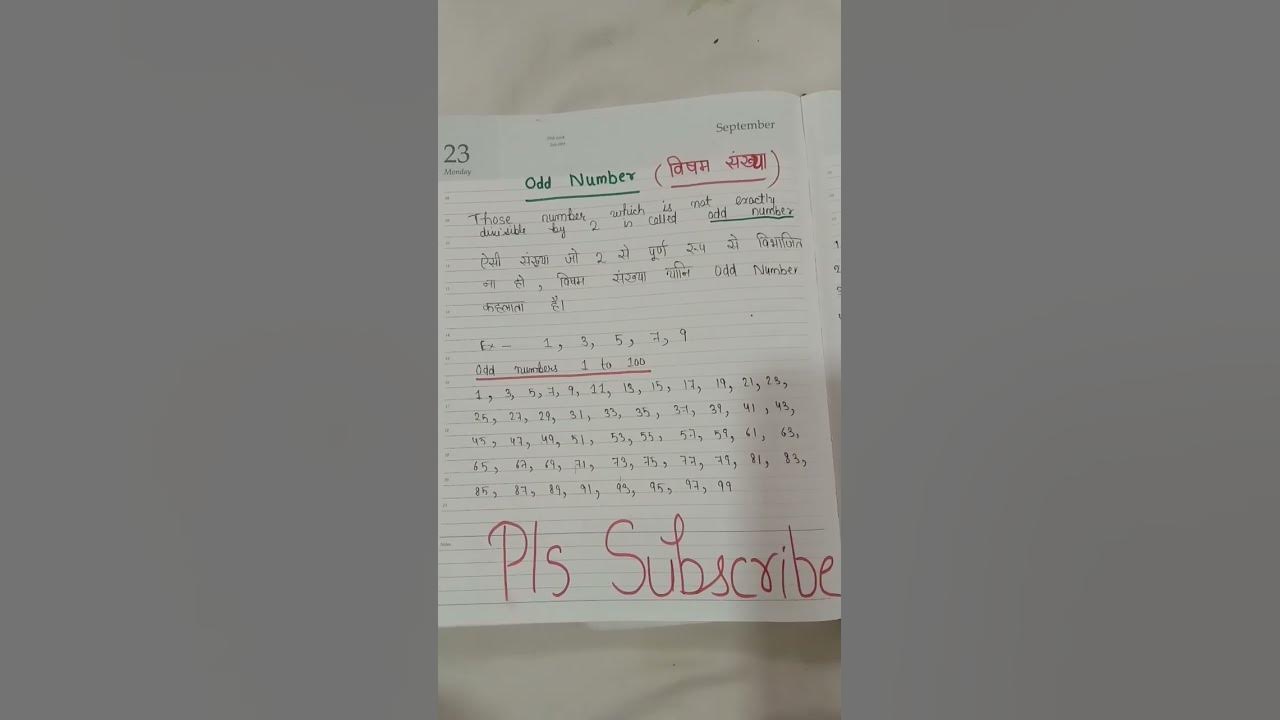 September
23
Monday
Odd Number (विषम संख्या)
Those number which is not exactly
divisible by 2 is called odd number
ऐसी संख्या जो 2 से पूर्ण रूप से विभाजित
ना हो, विषम संख्या यानि Odd Number
कहलाता है।
Ex - 1, 3, 5, 7, 9
Odd numbers 1 to 100
1, 3, 5, 7, 9, 11, 13, 15, 17, 19, 21, 23,
25, 27, 29, 31, 33, 35, 37, 39, 41, 43,
45, 47, 49, 51, 53, 55, 57, 59, 61, 63,
65, 67, 69, 71, 73, 75, 77, 79, 81, 83,
85, 87, 89, 91, 93, 95, 97, 99
Notes
Pls Subscribe